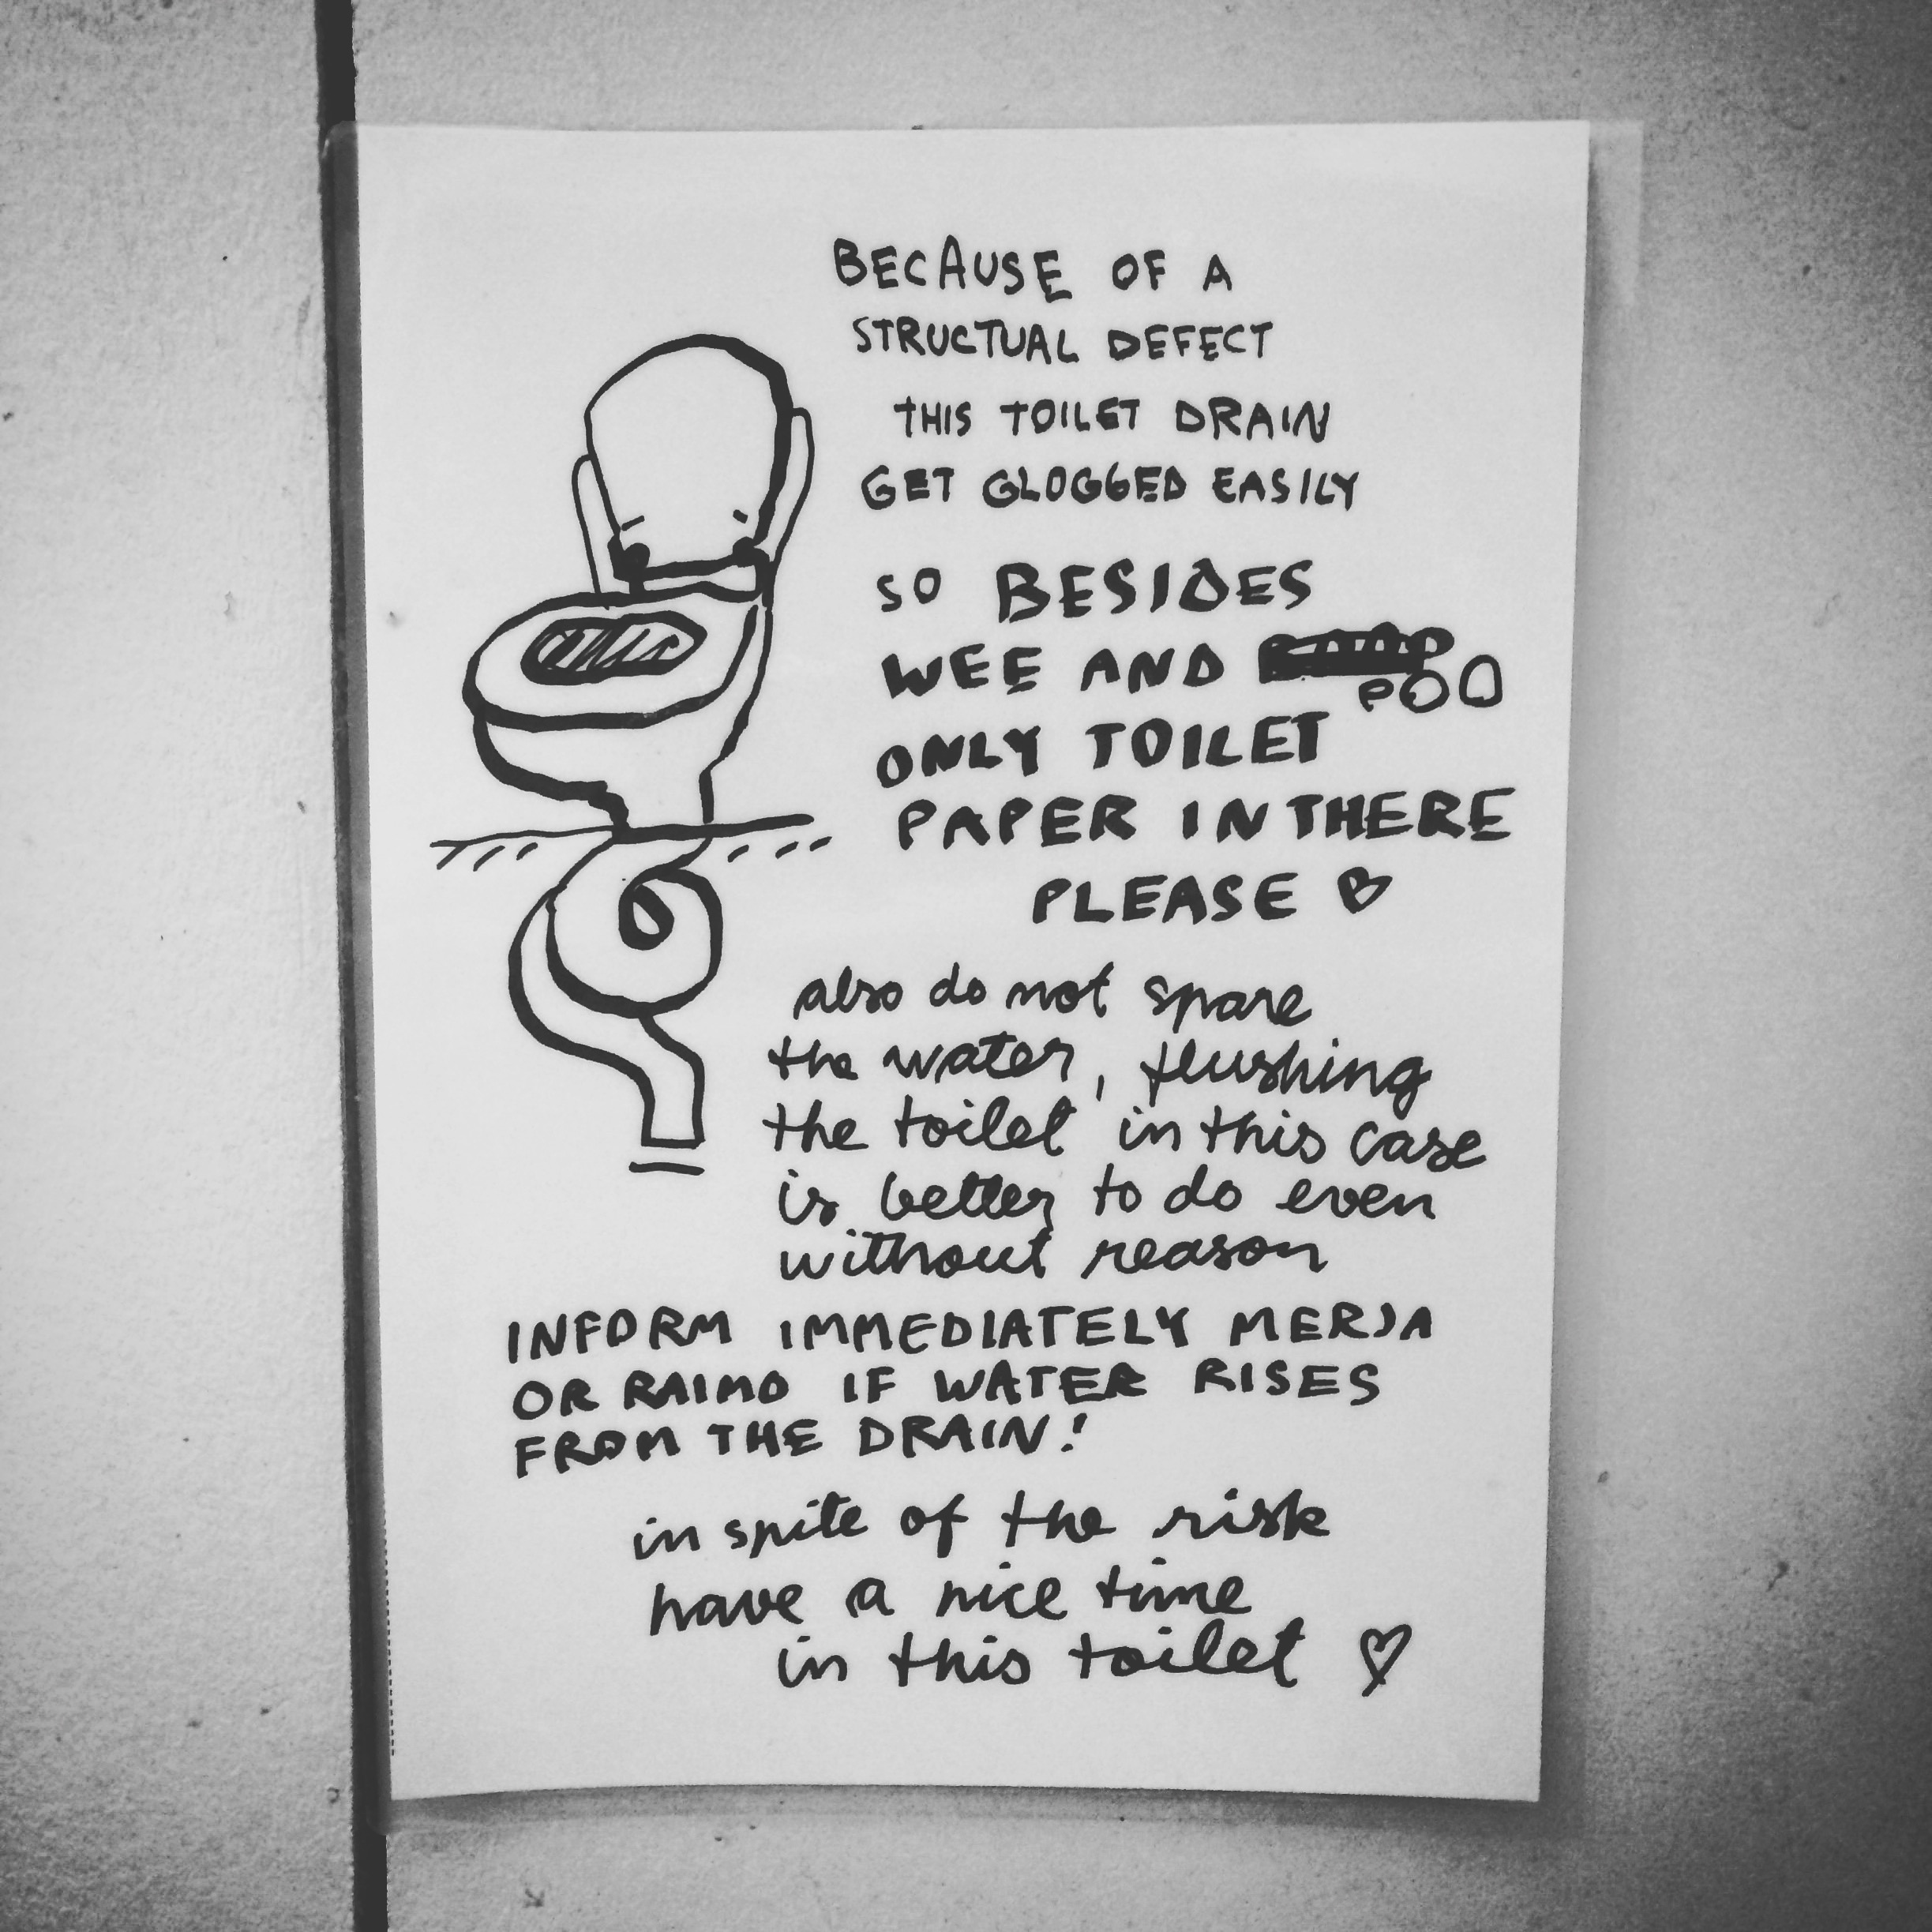 BECAUSE OF A
STRUCTUAL DEFECT
THIS TOILET DRAIN
GET GLOGGED EASILY
SO BESIDES
WEE AND
POO
ONLY TOILET
PAPER IN THERE
PLEASE ♡
also do not spare
the water, flushing
the toilet in this case
is better to do even
without reason
INFORM IMMEDIATELY MERJA
OR RAIMO IF WATER RISES
FROM THE DRAIN!
in spite of the risk
have a nice time
in this toilet ♡